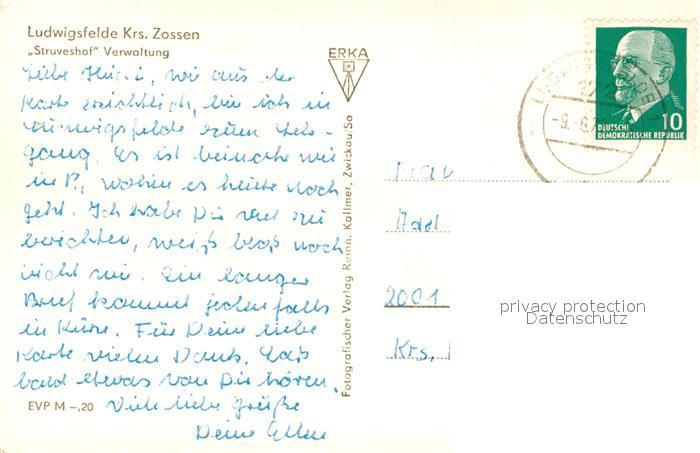 Ludwigsfelde Krs. Zossen
„Struveshof" Verwaltung
Liebe, wie aus der
Karte ersichtlich, bin ich in
Ludwigsfelde zum Lehr-
gang. Es ist beinahe wie
in P., wohin es heute noch
geht. Ich habe Dir viel zu
berichten, weiß bloß noch
nicht wie. Ein langer
Brief kommt jedenfalls
in Kürze. Für Deine liebe
Karte vielen Dank. Laß
bald etwas von Dir hören.
Viele liebe Grüße
Deine Ellen
EVP M –,20
ERKA
Fotografischer Verlag Reinh. Kallmer, Zwickau/Sa
-9.-6.7
10
DEUTSCHE
DEMOKRATISCHE REPUBLIK
Frau
Adel
2001
Krs.
privacy protection
Datenschutz